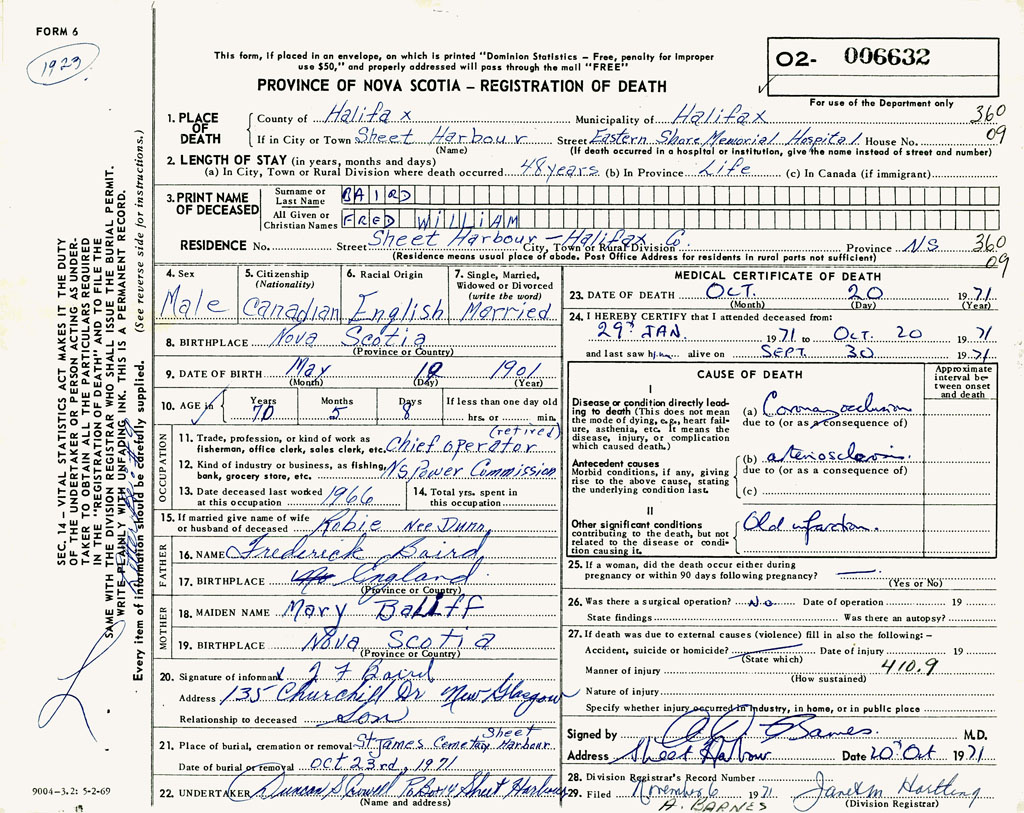 FORM 6
1923
This form, if placed in an envelope, on which is printed "Dominion Statistics – Free, penalty for improper
use $50," and properly addressed will pass through the mail "FREE"
PROVINCE OF NOVA SCOTIA – REGISTRATION OF DEATH
02- 006632
For use of the Department only
1. PLACE OF DEATH
County of Halifax Municipality of Halifax 360
If in City or Town Sheet Harbour Street Eastern Shore Memorial Hospital House No. 09
(Name) (If death occurred in a hospital or institution, give the name instead of street and number)
2. LENGTH OF STAY (in years, months and days)
(a) In City, Town or Rural Division where death occurred 48 years (b) In Province Life (c) In Canada (if immigrant)
3. PRINT NAME OF DECEASED
Surname or Last Name BAIRD
All Given or Christian Names FRED WILLIAM
RESIDENCE No. Street Sheet Harbour – Halifax Co. City, Town or Rural Division Province N.S. 360
(Residence means usual place of abode. Post Office Address for residents in rural parts not sufficient) 09
4. Sex Male
5. Citizenship (Nationality) Canadian
6. Racial Origin English
7. Single, Married, Widowed or Divorced (write the word) Married
8. BIRTHPLACE Nova Scotia
(Province or Country)
9. DATE OF BIRTH May 1901
(Month) (Day) (Year)
10. AGE in Years 70 Months 5 Days 8 If less than one day old hrs. or min.
OCCUPATION
11. Trade, profession, or kind of work as fisherman, office clerk, sales clerk, etc. Chief operator (retired)
12. Kind of industry or business, as fishing, bank, grocery store, etc. N.S. Power Commission
13. Date deceased last worked at this occupation 1966
14. Total yrs. spent in this occupation
15. If married give name of wife or husband of deceased Robie Nee Dunn
FATHER
16. NAME Frederick Baird
17. BIRTHPLACE England
(Province or Country)
MOTHER
18. MAIDEN NAME Mary Baliff
19. BIRTHPLACE Nova Scotia
(Province or Country)
20. Signature of informant F Baird
Address 135 Churchill Dr New Glasgow
Relationship to deceased Son
21. Place of burial, cremation or removal St James Cemetary Sheet Harbour
Date of burial or removal Oct 23rd, 1971
22. UNDERTAKER Duncan S Crowell P.O. Box 4 Sheet Harbour
(Name and address)
MEDICAL CERTIFICATE OF DEATH
23. DATE OF DEATH OCT. 20 1971
(Month) (Day) (Year)
24. I HEREBY CERTIFY that I attended deceased from:
29th JAN. 1971 to OCT. 20 1971
and last saw him alive on SEPT. 30 1971
CAUSE OF DEATH
Approximate interval between onset and death
I
Disease or condition directly leading to death (This does not mean the mode of dying, e.g., heart failure, asthenia, etc. It means the disease, injury, or complication which caused death.)
(a) Coronary occlusion
due to (or as a consequence of)
Antecedent causes
Morbid conditions, if any, giving rise to the above cause, stating the underlying condition last.
(b) arteriosclerosis
due to (or as a consequence of)
(c)
II
Other significant conditions contributing to the death, but not related to the disease or condition causing it.
Old infarction.
25. If a woman, did the death occur either during pregnancy or within 90 days following pregnancy?
(Yes or No)
26. Was there a surgical operation? No Date of operation 19
State findings Was there an autopsy?
27. If death was due to external causes (violence) fill in also the following: –
Accident, suicide or homicide? Date of injury 19
(State which)
Manner of injury 410.9
(How sustained)
Nature of injury
Specify whether injury occurred in industry, in home, or in public place
Signed by Barnes M.D.
Address Sheet Harbour Date 20th Oct 1971
28. Division Registrar's Record Number
29. Filed November 6 1971 Janet M Hartling
A. BARNES (Division Registrar)
SEC. 14 – VITAL STATISTICS ACT MAKES IT THE DUTY
OF THE UNDERTAKER OR PERSON ACTING AS UNDER-
TAKER TO OBTAIN ALL THE PARTICULARS REQUIRED
IN THE "REGISTRATION OF DEATH" AND TO FILE THE
SAME WITH THE DIVISION REGISTRAR WHO SHALL ISSUE THE BURIAL PERMIT.
WRITE PLAINLY WITH UNFADING INK. THIS IS A PERMANENT RECORD.
Every item of information should be carefully supplied. (See reverse side for instructions.)
9004-3.2: 5-2-69